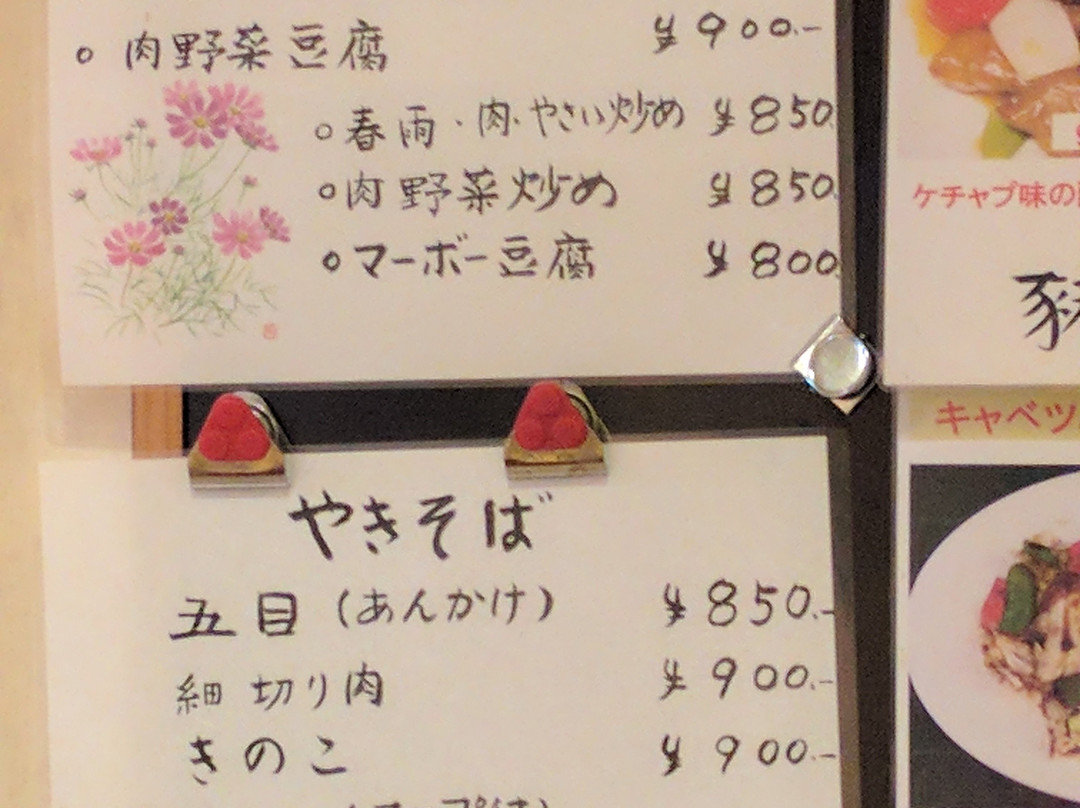 ○ 肉野菜豆腐 ¥900.-
○春雨・肉・やさい炒め ¥850.
○肉野菜炒め ¥850.
○マーボー豆腐 ¥800
やきそば
五目(あんかけ) ¥850.-
細切り肉 ¥900.-
きのこ ¥900.-
ケチャプ味の
キャベツ